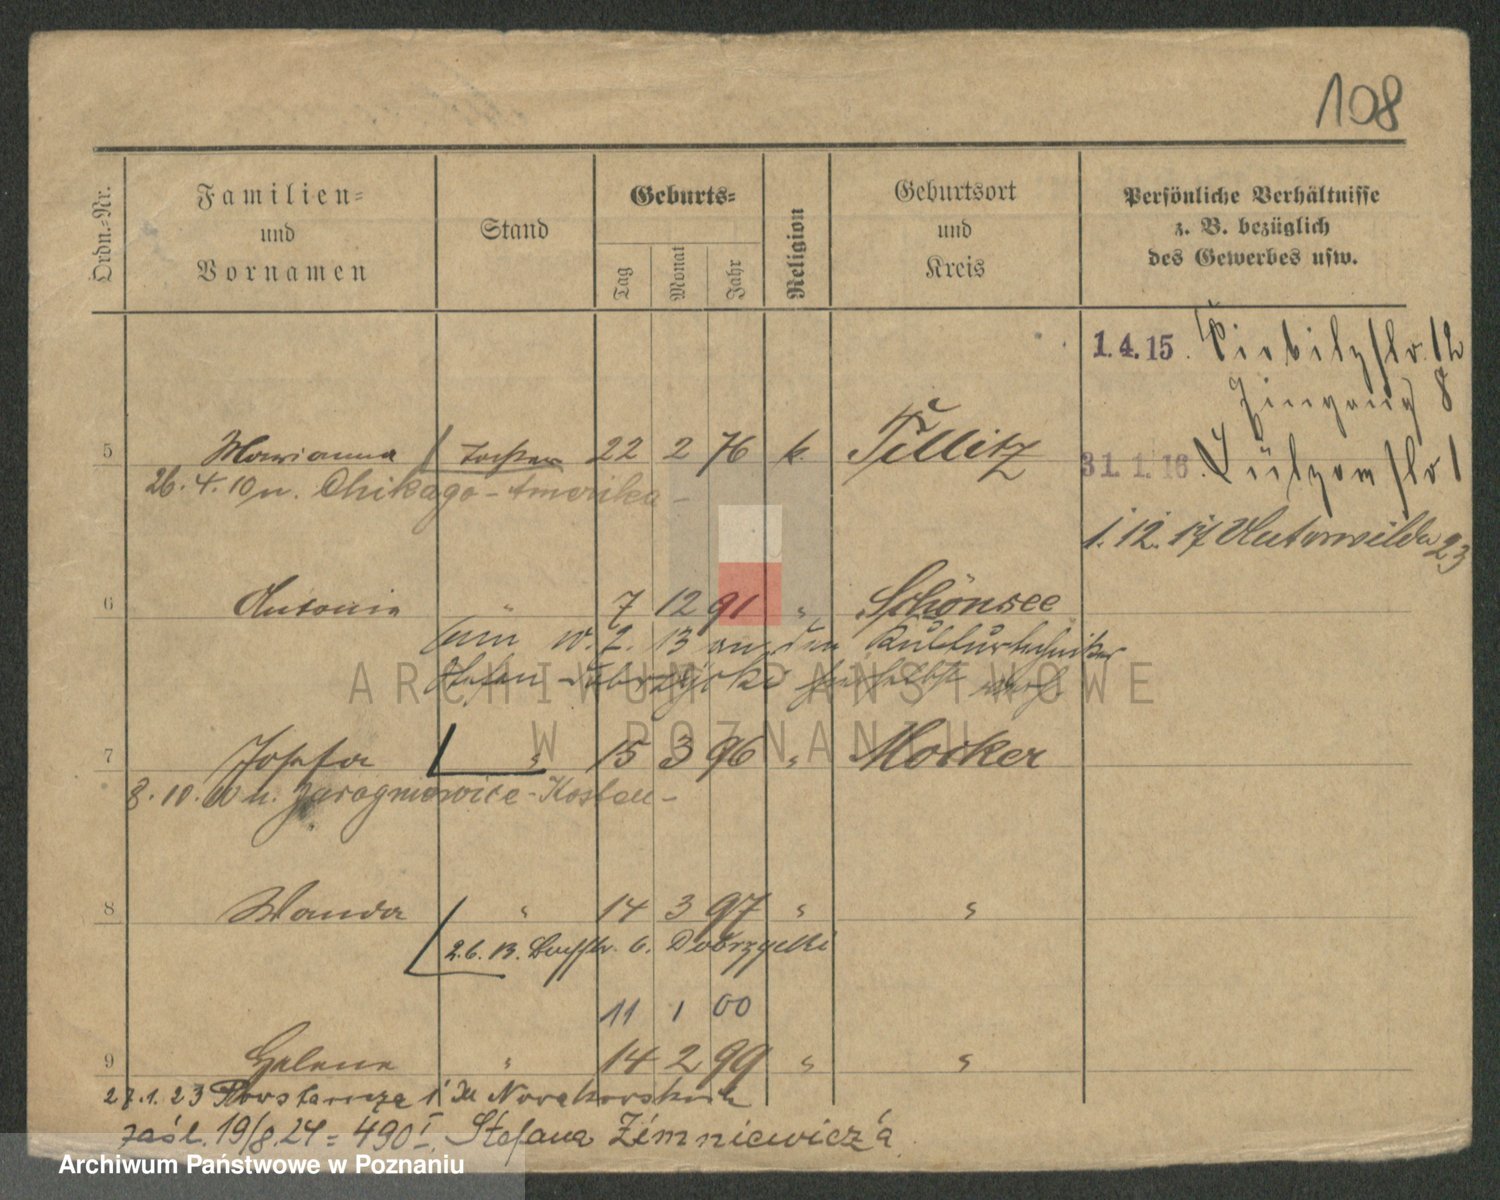 108
Ordn.-Nr.
Familien- und Vornamen
Stand
Geburts-
Tag
Monat
Jahr
Religion
Geburtsort und Kreis
Persönliche Verhältnisse
z. B. bezüglich
des Gewerbes usw.
1.4.15.
12
Eingang 8
5 Marianna Tochter 22 2 76 k. Tillitz
31.1.16. Lützowstr 1
26. 4. 10 n. Chikago - Amerika -
1. 12. 17 Unterwilda 23
6 Antonie " 7 12 91 " Schönsee
am 10. 2. 13 an den Kulturtechniker
Stefan Dobrzycki
7 Josefa " 15 3 96 " Mocker
8. 10. 10 n. - Kosten -
8 Wanda " 14 3 97 " "
2.6.13. b. Dobrzycki
11 1 00
9 Helene " 14 2 99 " "
27.1.23
zaśl. 19/8.24 = 490 I. Stefana Zimniewicz'a.
ARCHIWUM PAŃSTWOWE
W POZNANIU
Archiwum Państwowe w Poznaniu